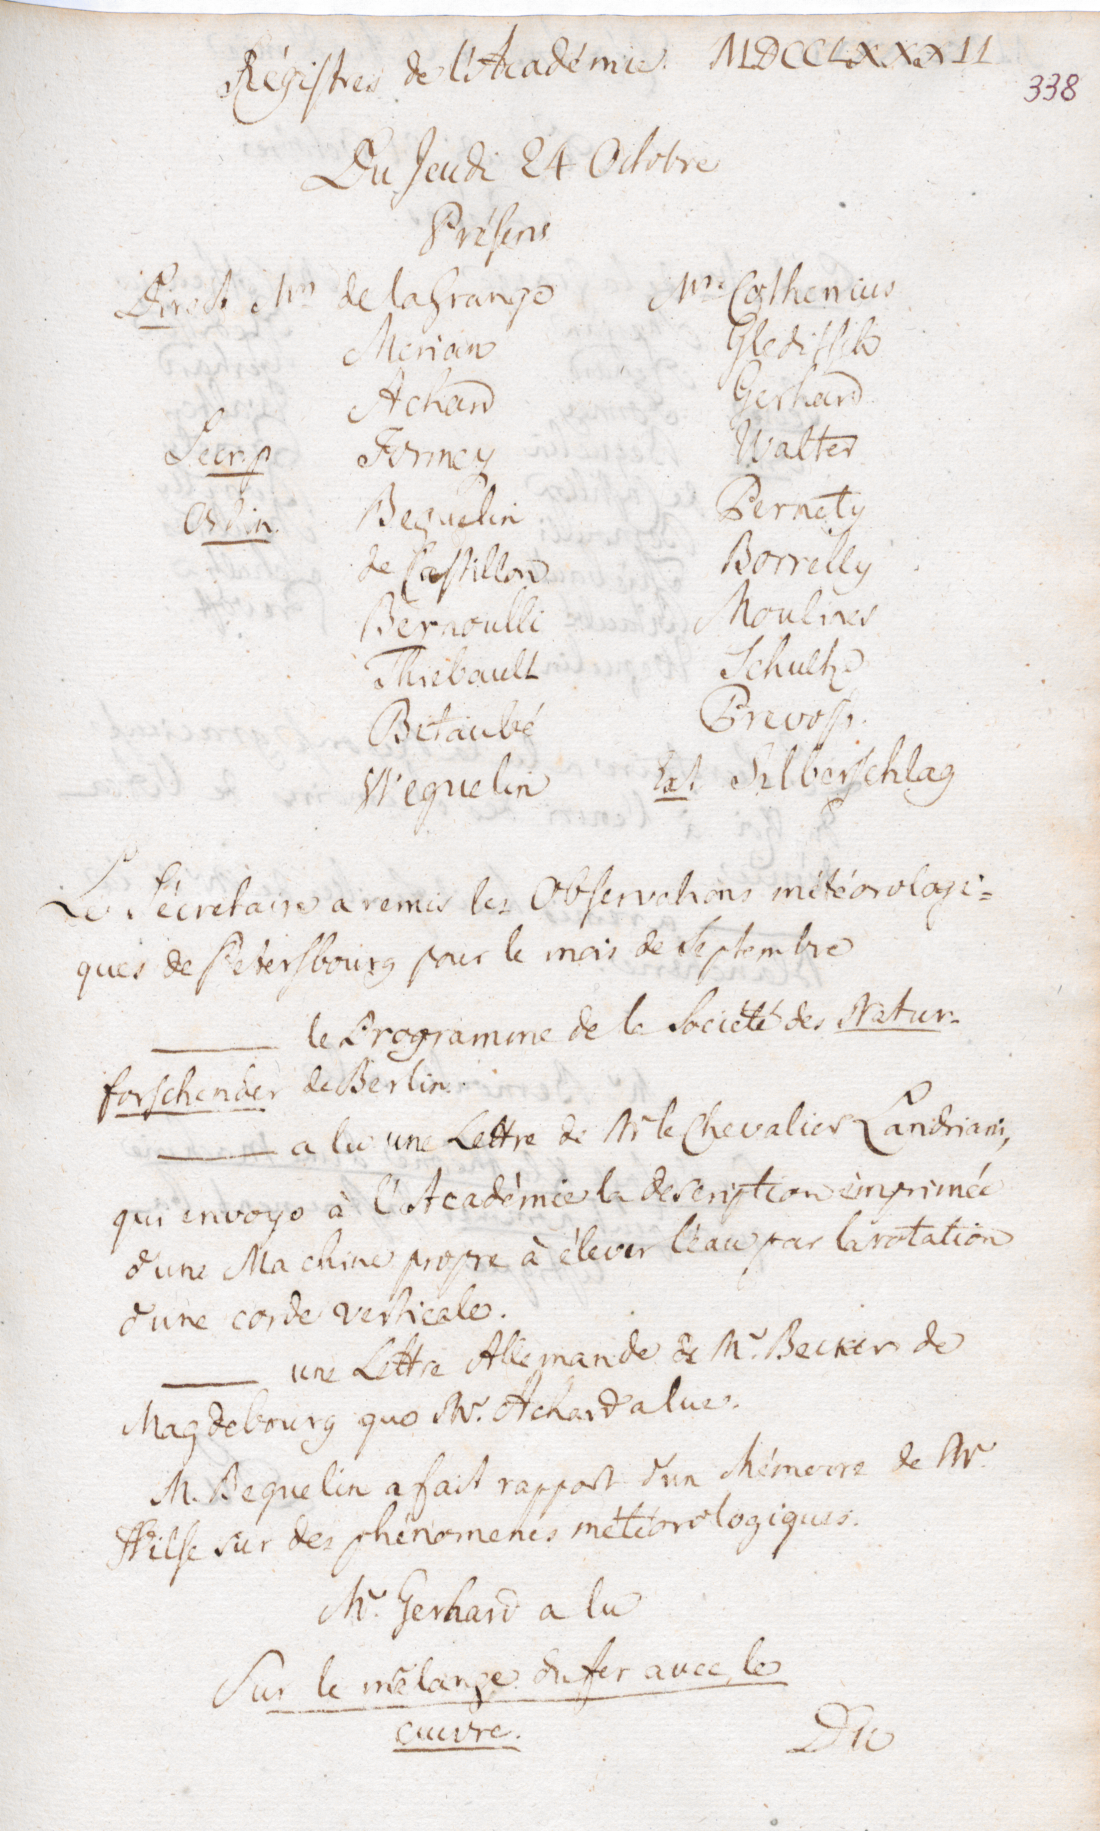 Régistres de l'Académie. MDCCLXXXII
338
Du Jeudi 24 Octobre
Présens
Direct Mrs de la Grange
Merian
Achard
Secr. p Formey
Ordin. Beguelin
de Castillon
Bernoulli
Thiebault
Bitaubé
Weguelin
Mrs. Cothenius
Gleditsch
Gerhard
Walter
Pernety
Borrelly
Moulines
Schultz
Prevost.
Ext. Silberschlag
Le Sécretaire a remis les Observations météorologi=
ques de Petersbourg pour le mois de Septembre
le Programme de la Société des Natur-
forschender de Berlin.
a lu une Lettre de Mr le Chevalier Landriani,
qui envoye à l'Académie la description imprimée
d'une Machine propre à élever l'eau par la rotation
d'une corde verticale.
une Lettre Allemande de Mr. Becker de
Magdebourg que Mr. Achard a lue.
M. Beguelin a fait rapport d'un Mémoire de Mr.
Hilse sur des phénomenes météorologiques.
Mr. Gerhard a lu
Sur le mélange du fer avec le
cuivre.
Du